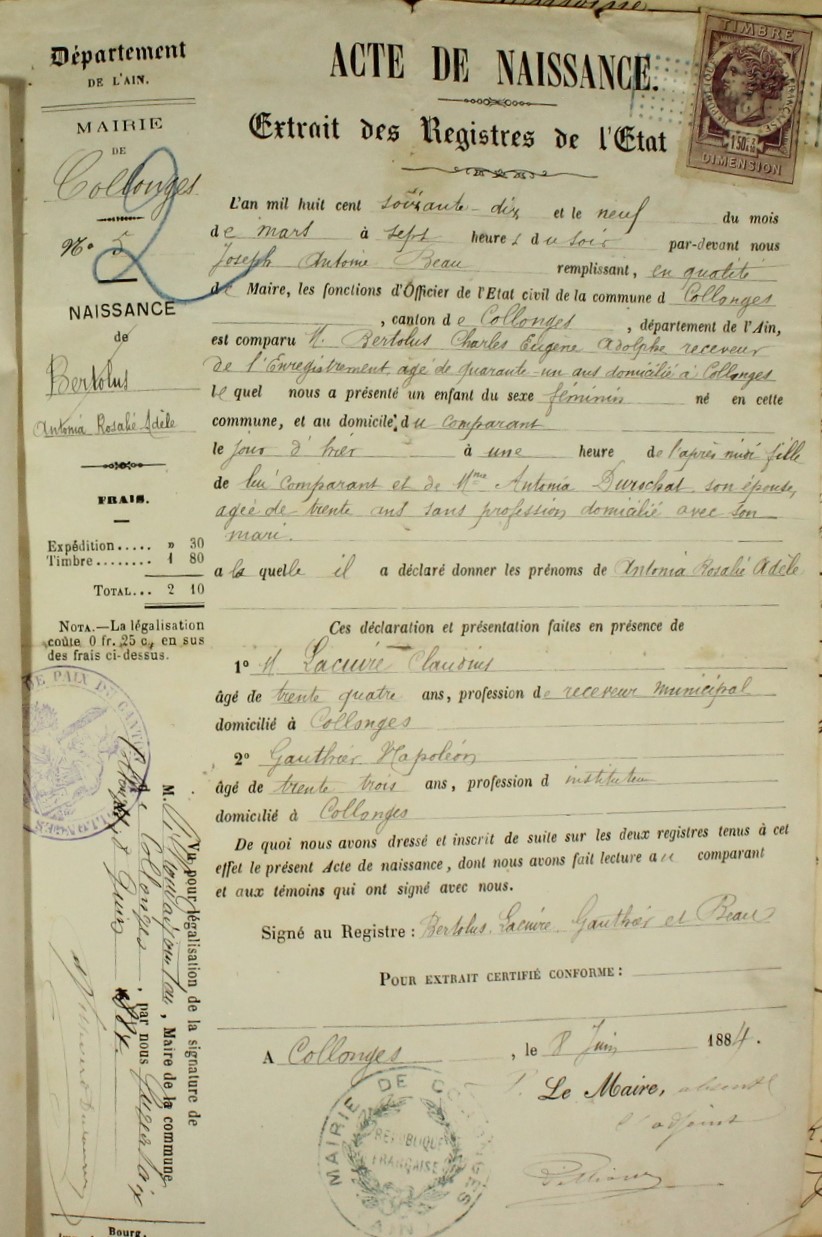 Département
DE L'AIN.
MAIRIE
DE
Collonges
N° 5
2
NAISSANCE
de
Bertolus
Antonia Rosalie Adèle
FRAIS.
Expédition..... » 30
Timbre........ 1 80
TOTAL... 2 10
NOTA.—La légalisation
coûte 0 fr. 25 c. en sus
des frais ci-dessus.
ACTE DE NAISSANCE.
Extrait des Registres de l'Etat
TIMBRE
1 50
DIMENSION
L'an mil huit cent soixante-dix et le neuf du mois
de mars à sept heures du soir par-devant nous
Joseph Antoine Beau remplissant, en qualité
de Maire, les fonctions d'Officier de l'Etat civil de la commune d Collonges
, canton de Collonges , département de l'Ain,
est comparu M. Bertolus Charles Eugène Adolphe receveur
de l'Enregistrement âgé de quarante-un ans domicilié à Collonges
lequel nous a présenté un enfant du sexe féminin né en cette
commune, et au domicile du comparant
le jour d'hier à une heure de l'après midi fille
de lui comparant et de Mme Antonia Durochat son épouse,
agée de trente ans sans profession domicilié avec son
mari.
a la quelle il a déclaré donner les prénoms de Antonia Rosalie Adèle
Ces déclaration et présentation faites en présence de
1° M Lacuire Claudius
âgé de trente quatre ans, profession de receveur municipal
domicilié à Collonges
2° Gauthier Napoléon
âgé de trente trois ans, profession d instituteur
domicilié à Collonges
De quoi nous avons dressé et inscrit de suite sur les deux registres tenus à cet
effet le présent Acte de naissance, dont nous avons fait lecture au comparant
et aux témoins qui ont signé avec nous.
Signé au Registre : Bertolus, Lacuire, Gauthier et Beau
POUR EXTRAIT CERTIFIÉ CONFORME :
A Collonges , le 8 Juin 1884.
Le Maire, absent
l'adjoint
MAIRIE DE COLLONGES
RÉPUBLIQUE
FRANÇAISE
AIN
DE PAIX DE CANTON
COLLONGES
Vu pour légalisation de la signature de
M. , Maire de la commune
de Collonges , par nous
8 Juin 1884.
Bourg,